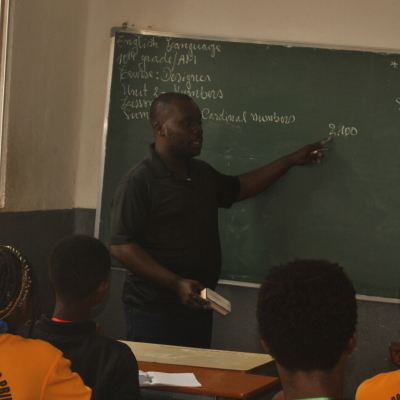 English Language
10th grade/AM
Course: Designer
Unit 2 - Numbers
Cardinal numbers
2,100